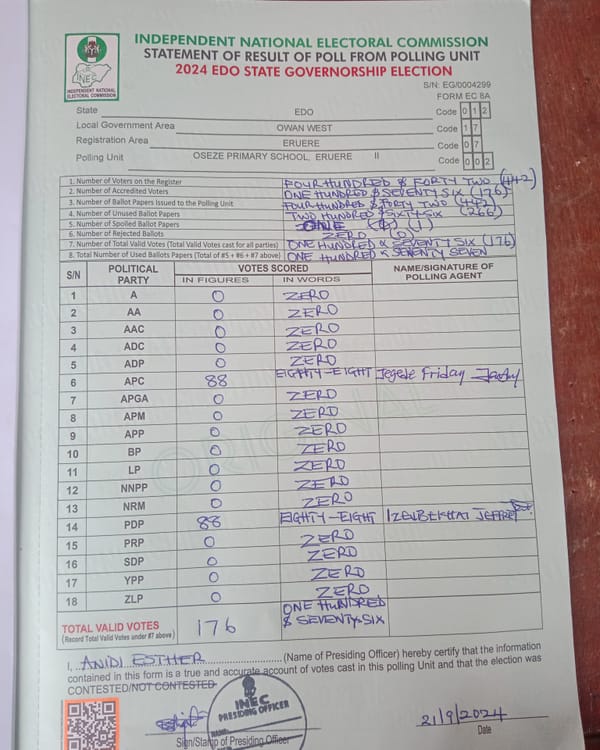 INDEPENDENT NATIONAL ELECTORAL COMMISSION
STATEMENT OF RESULT OF POLL FROM POLLING UNIT
2024 EDO STATE GOVERNORSHIP ELECTION
INEC
INDEPENDENT NATIONAL ELECTORAL COMMISSION
S/N: EG/0004299
FORM EC 8A
State EDO Code 0 1 2
Local Government Area OWAN WEST Code 1 7
Registration Area ERUERE Code 0 7
Polling Unit OSEZE PRIMARY SCHOOL, ERUERE II Code 0 0 2
1. Number of Voters on the Register FOUR HUNDRED & FORTY TWO (442)
2. Number of Accredited Voters ONE HUNDRED & SEVENTY SIX (176)
3. Number of Ballot Papers Issued to the Polling Unit FOUR HUNDRED & FORTY TWO (442)
4. Number of Unused Ballot Papers TWO HUNDRED & SIXTY SIX (266)
5. Number of Spoiled Ballot Papers ONE (1)
6. Number of Rejected Ballots ZERO (0)
7. Number of Total Valid Votes (Total Valid Votes cast for all parties) ONE HUNDRED & SEVENTY SIX (176)
8. Total Number of Used Ballots Papers (Total of #5 + #6 + #7 above) ONE HUNDRED & SEVENTY SEVEN
S/N POLITICAL PARTY VOTES SCORED NAME/SIGNATURE OF POLLING AGENT
IN FIGURES IN WORDS
1 A 0 ZERO
2 AA 0 ZERO
3 AAC 0 ZERO
4 ADC 0 ZERO
5 ADP 0 ZERO
6 APC 88 EIGHTY-EIGHT Jegede Friday
7 APGA 0 ZERO
8 APM 0 ZERO
9 APP 0 ZERO
10 BP 0 ZERO
11 LP 0 ZERO
12 NNPP 0 ZERO
13 NRM 0 ZERO
14 PDP 88 EIGHTY-EIGHT JEFFREY
15 PRP 0 ZERO
16 SDP 0 ZERO
17 YPP 0 ZERO
18 ZLP 0 ZERO
TOTAL VALID VOTES 176 ONE HUNDRED
(Record Total Valid Votes under #7 above) & SEVENTY SIX
I, ANIDI ESTHER (Name of Presiding Officer) hereby certify that the information
contained in this form is a true and accurate account of votes cast in this polling Unit and that the election was
CONTESTED/NOT CONTESTED
INEC
PRESIDING OFFICER
NAME:
21/9/2024
Sign/Stamp of Presiding Officer Date
ORIGINAL